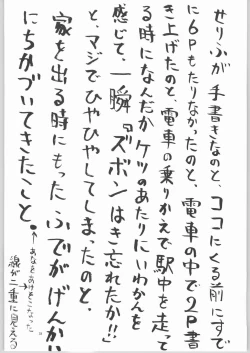 せりふが手書きなのと、ココにくる前にすで
に6Pもたりなかったのと、電車の中で2P書
き上げたのと、電車の乗りかえで駅中を走って
る時になんだかケツのあたりにいわかんを
感じて、一瞬『ズボンはき忘れたか!!』
と、マジでひやひやしてしまったのと.
家を出る時にもったふでがげんかい
にちかづいてきたこと。
←あなをあけそこなった。
線が二重に見える